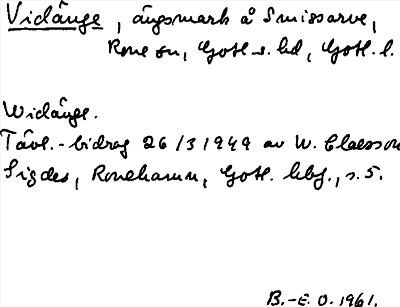 Vidänge, ängsmark å Smissarve,
Rone sn, Gotl. s. hd, Gotl. l.
Widänge.
Tävl.-bidrag 26/3 1949 av W. Claesson
Sigdes, Ronehamn, Gotl. lbf., s. 5.
B.-E. O. 1961.